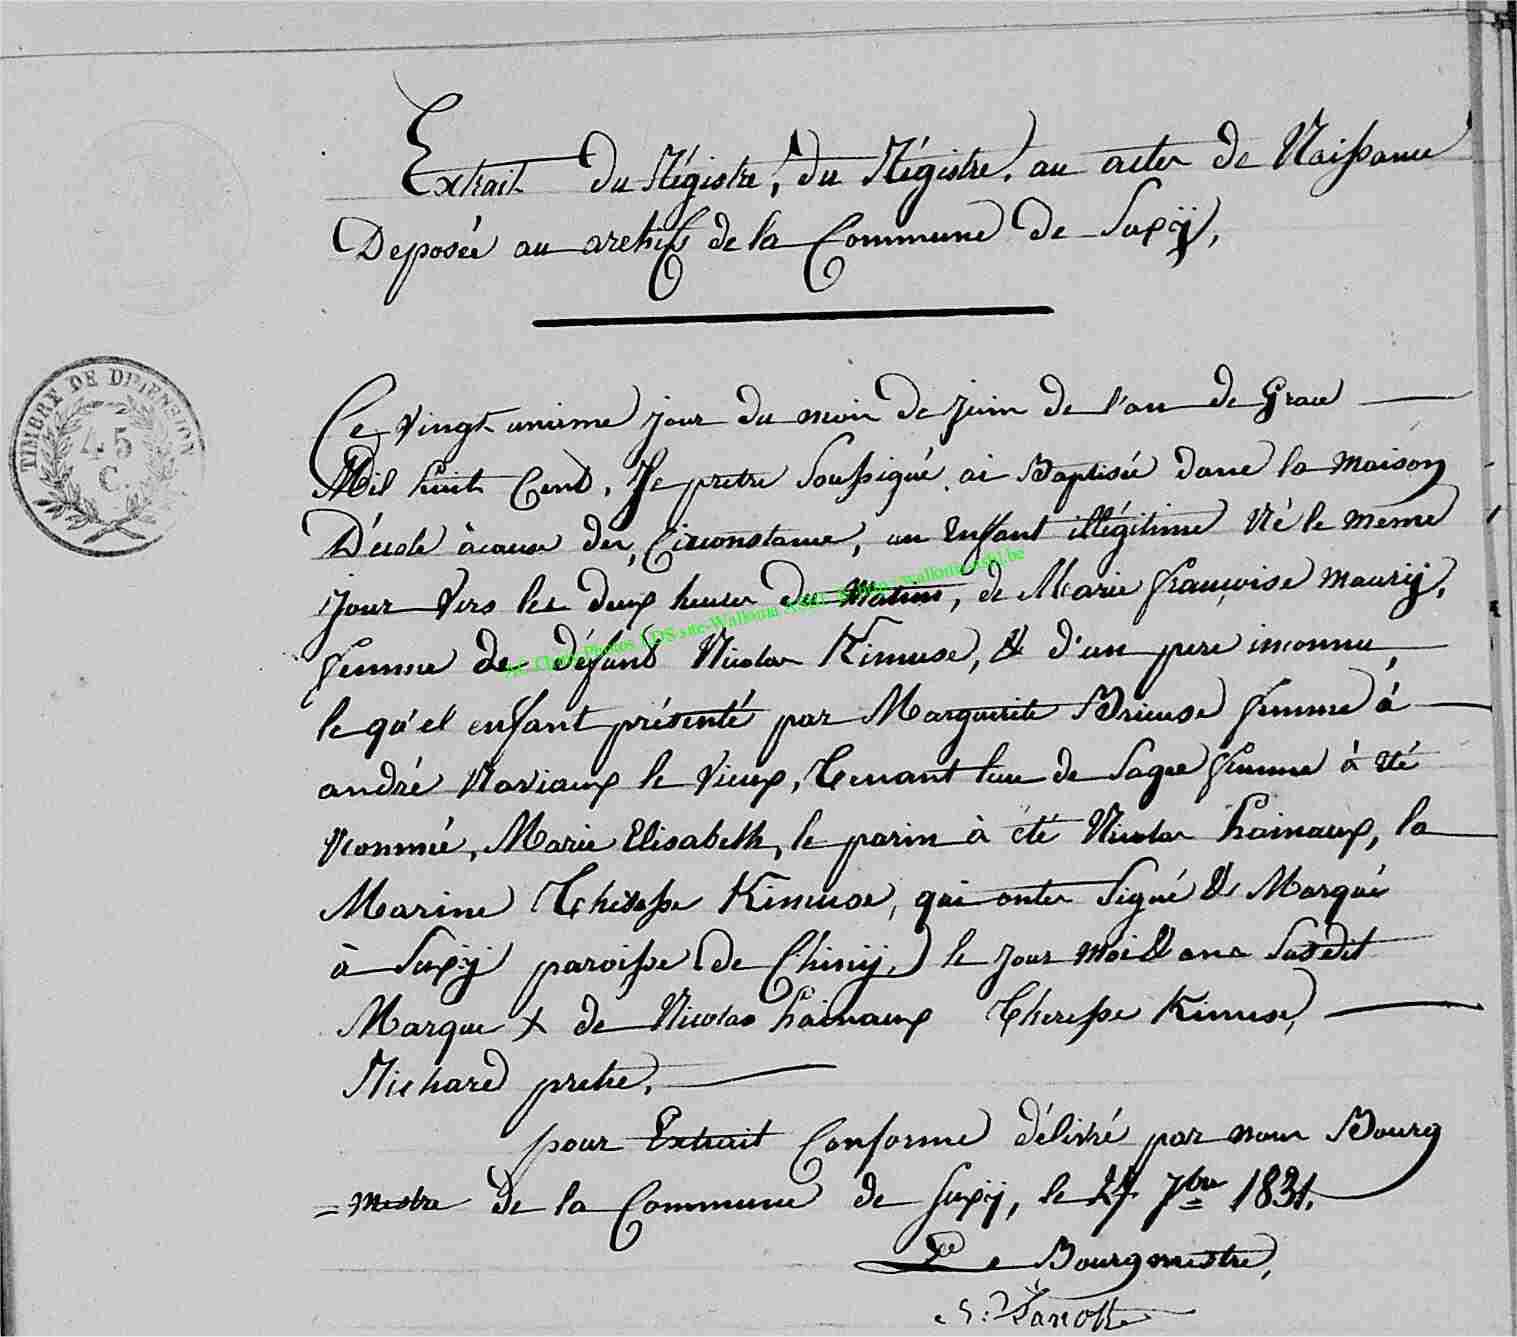 Extrait du Régistre, du Régistre, au actes de Naissance
Deposée au archifs de la Commune de Suxÿ,
TIMBRE DE DIMENSION
45
C.
Ce vingt unieme jour du mois de juin de l'an de Grace
Mil huit Cent, Je pretre Soussigné ai Baptisée dans la maison
D'école àcause des Circonstance, un Enfant illégitime Né le meme
jour vers les deux heures du Matin, de Marie françoise maurÿ,
femme de défunt Nicolas Kimuse, & d'un pere inconnu,
le qu'el enfant présenté par Marguerite Brieuse femme à
andré Naviaux le vieux, Tenant lieu de Sage femme à été
Nommée, Marie Elisabeth, le parin à été Nicolas hainaux, la
Marine Theresse Kimuse, qui ontes Signé & Marqué
à Suxÿ paroisse de Chinÿ, le jour moi & ans Susdit
Marque x de Nicolas hainaux Theresse Kimuse,
Richard pretre,
pour Extrait Conforme délivré par nous Bourg
= mestre de la Commune de Suxÿ, le 27 7bre 1831,
Le Bourgmestre,